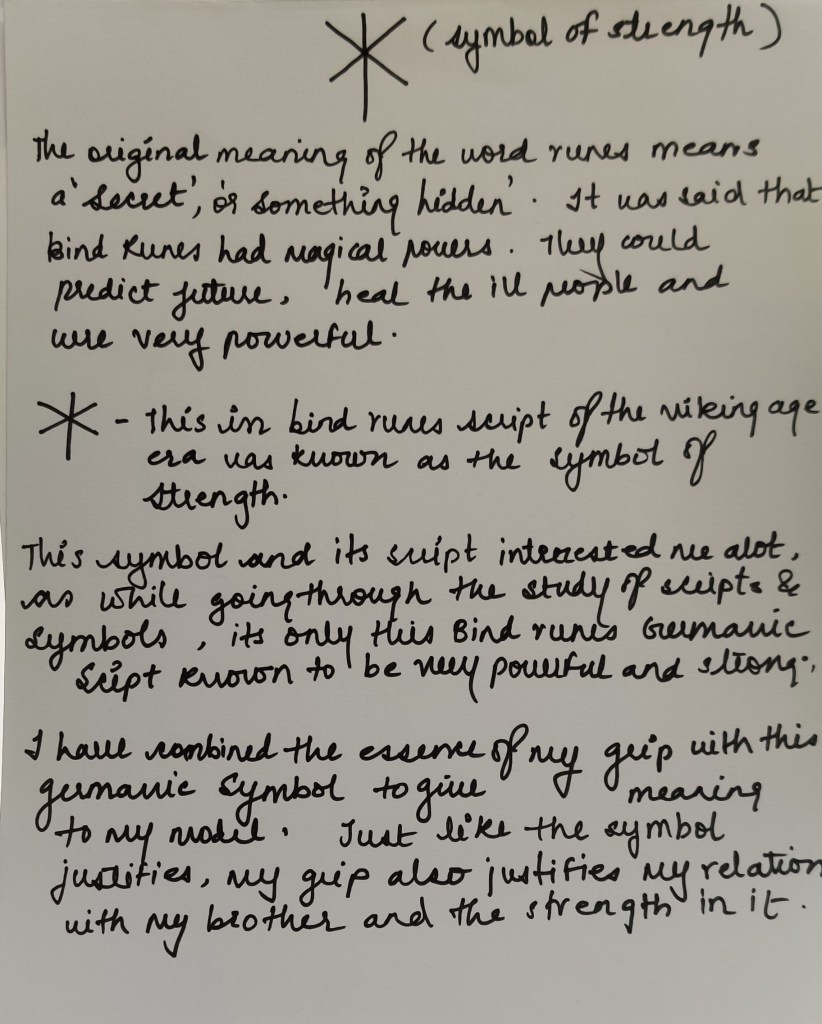 (symbol of strength)
The original meaning of the word runes means
a 'secret', or something hidden'. It was said that
Bind Runes had magical powers. They could
predict future, heal the ill people and
were very powerful.
- This in bind runes script of the viking age
era was known as the symbol of
strength.
This symbol and its script interested me alot,
as while going through the study of scripts &
symbols, its only this Bind runes Germanic
Script known to be very powerful and strong.
I have combined the essence of my grip with this
germanic symbol to give meaning
to my model. Just like the symbol
justifies, my grip also justifies my relation
with my brother and the strength in it.